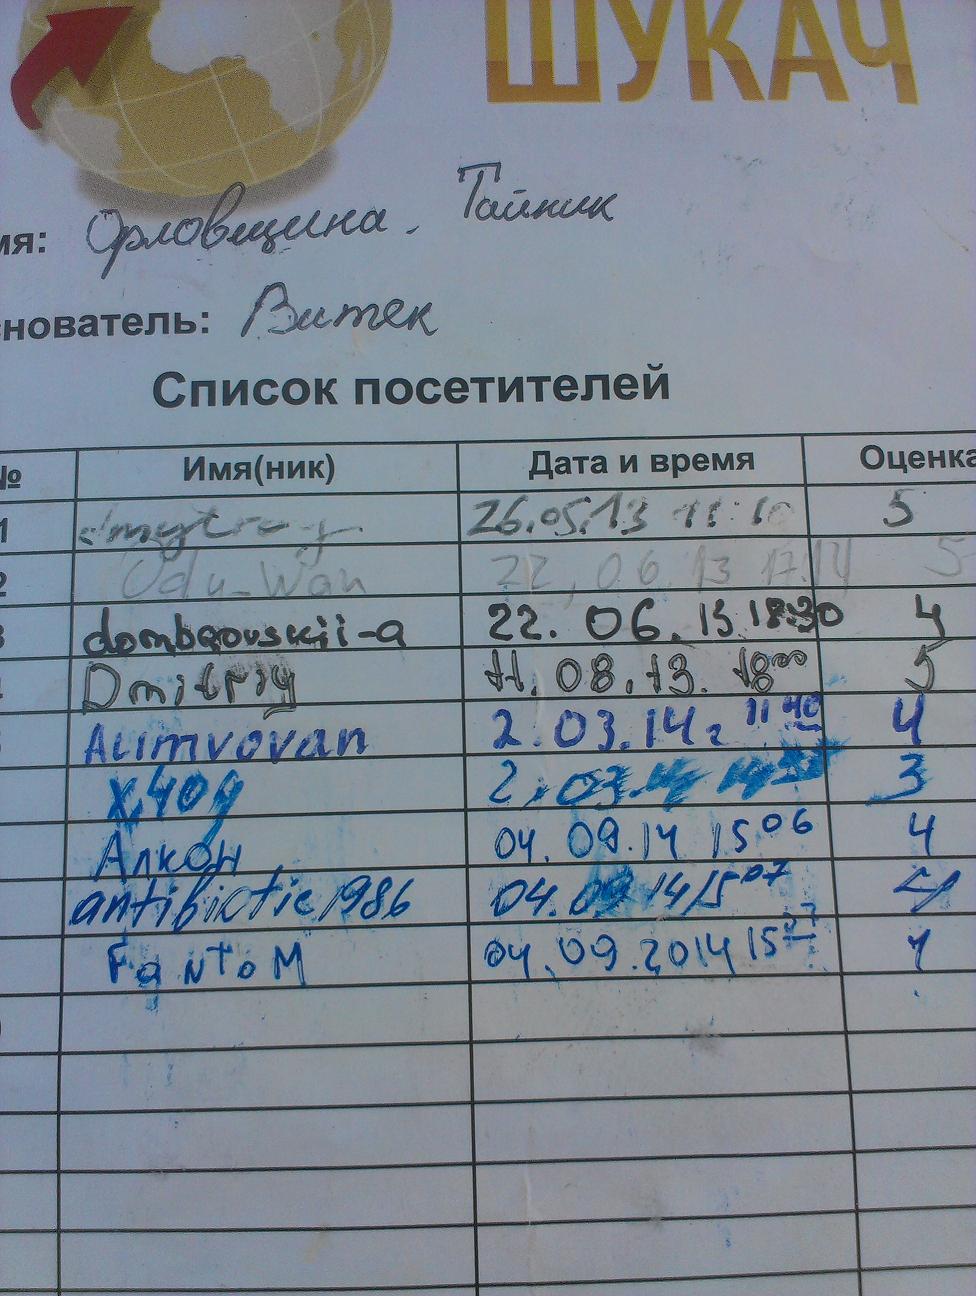 ШУКАЧ
мя: Орловщина. Тайник
снователь: Витек
Список посетителей
№ Имя(ник) Дата и время Оценка
1 26.05.13 11:10 5
2 Odu_Wan 22.06.13 17:14 5
3 dombrovskii-a 22.06.13 18:30 4
Dmitriy 11.08.13. 18°° 5
Alimvovan 2.03.14г 11 40 4
2.03.14 3
Алкон 04.09.14 15 06 4
antibiotic1986 04.09 14 15 07 4
FaNToM 04.09.2014 15 4